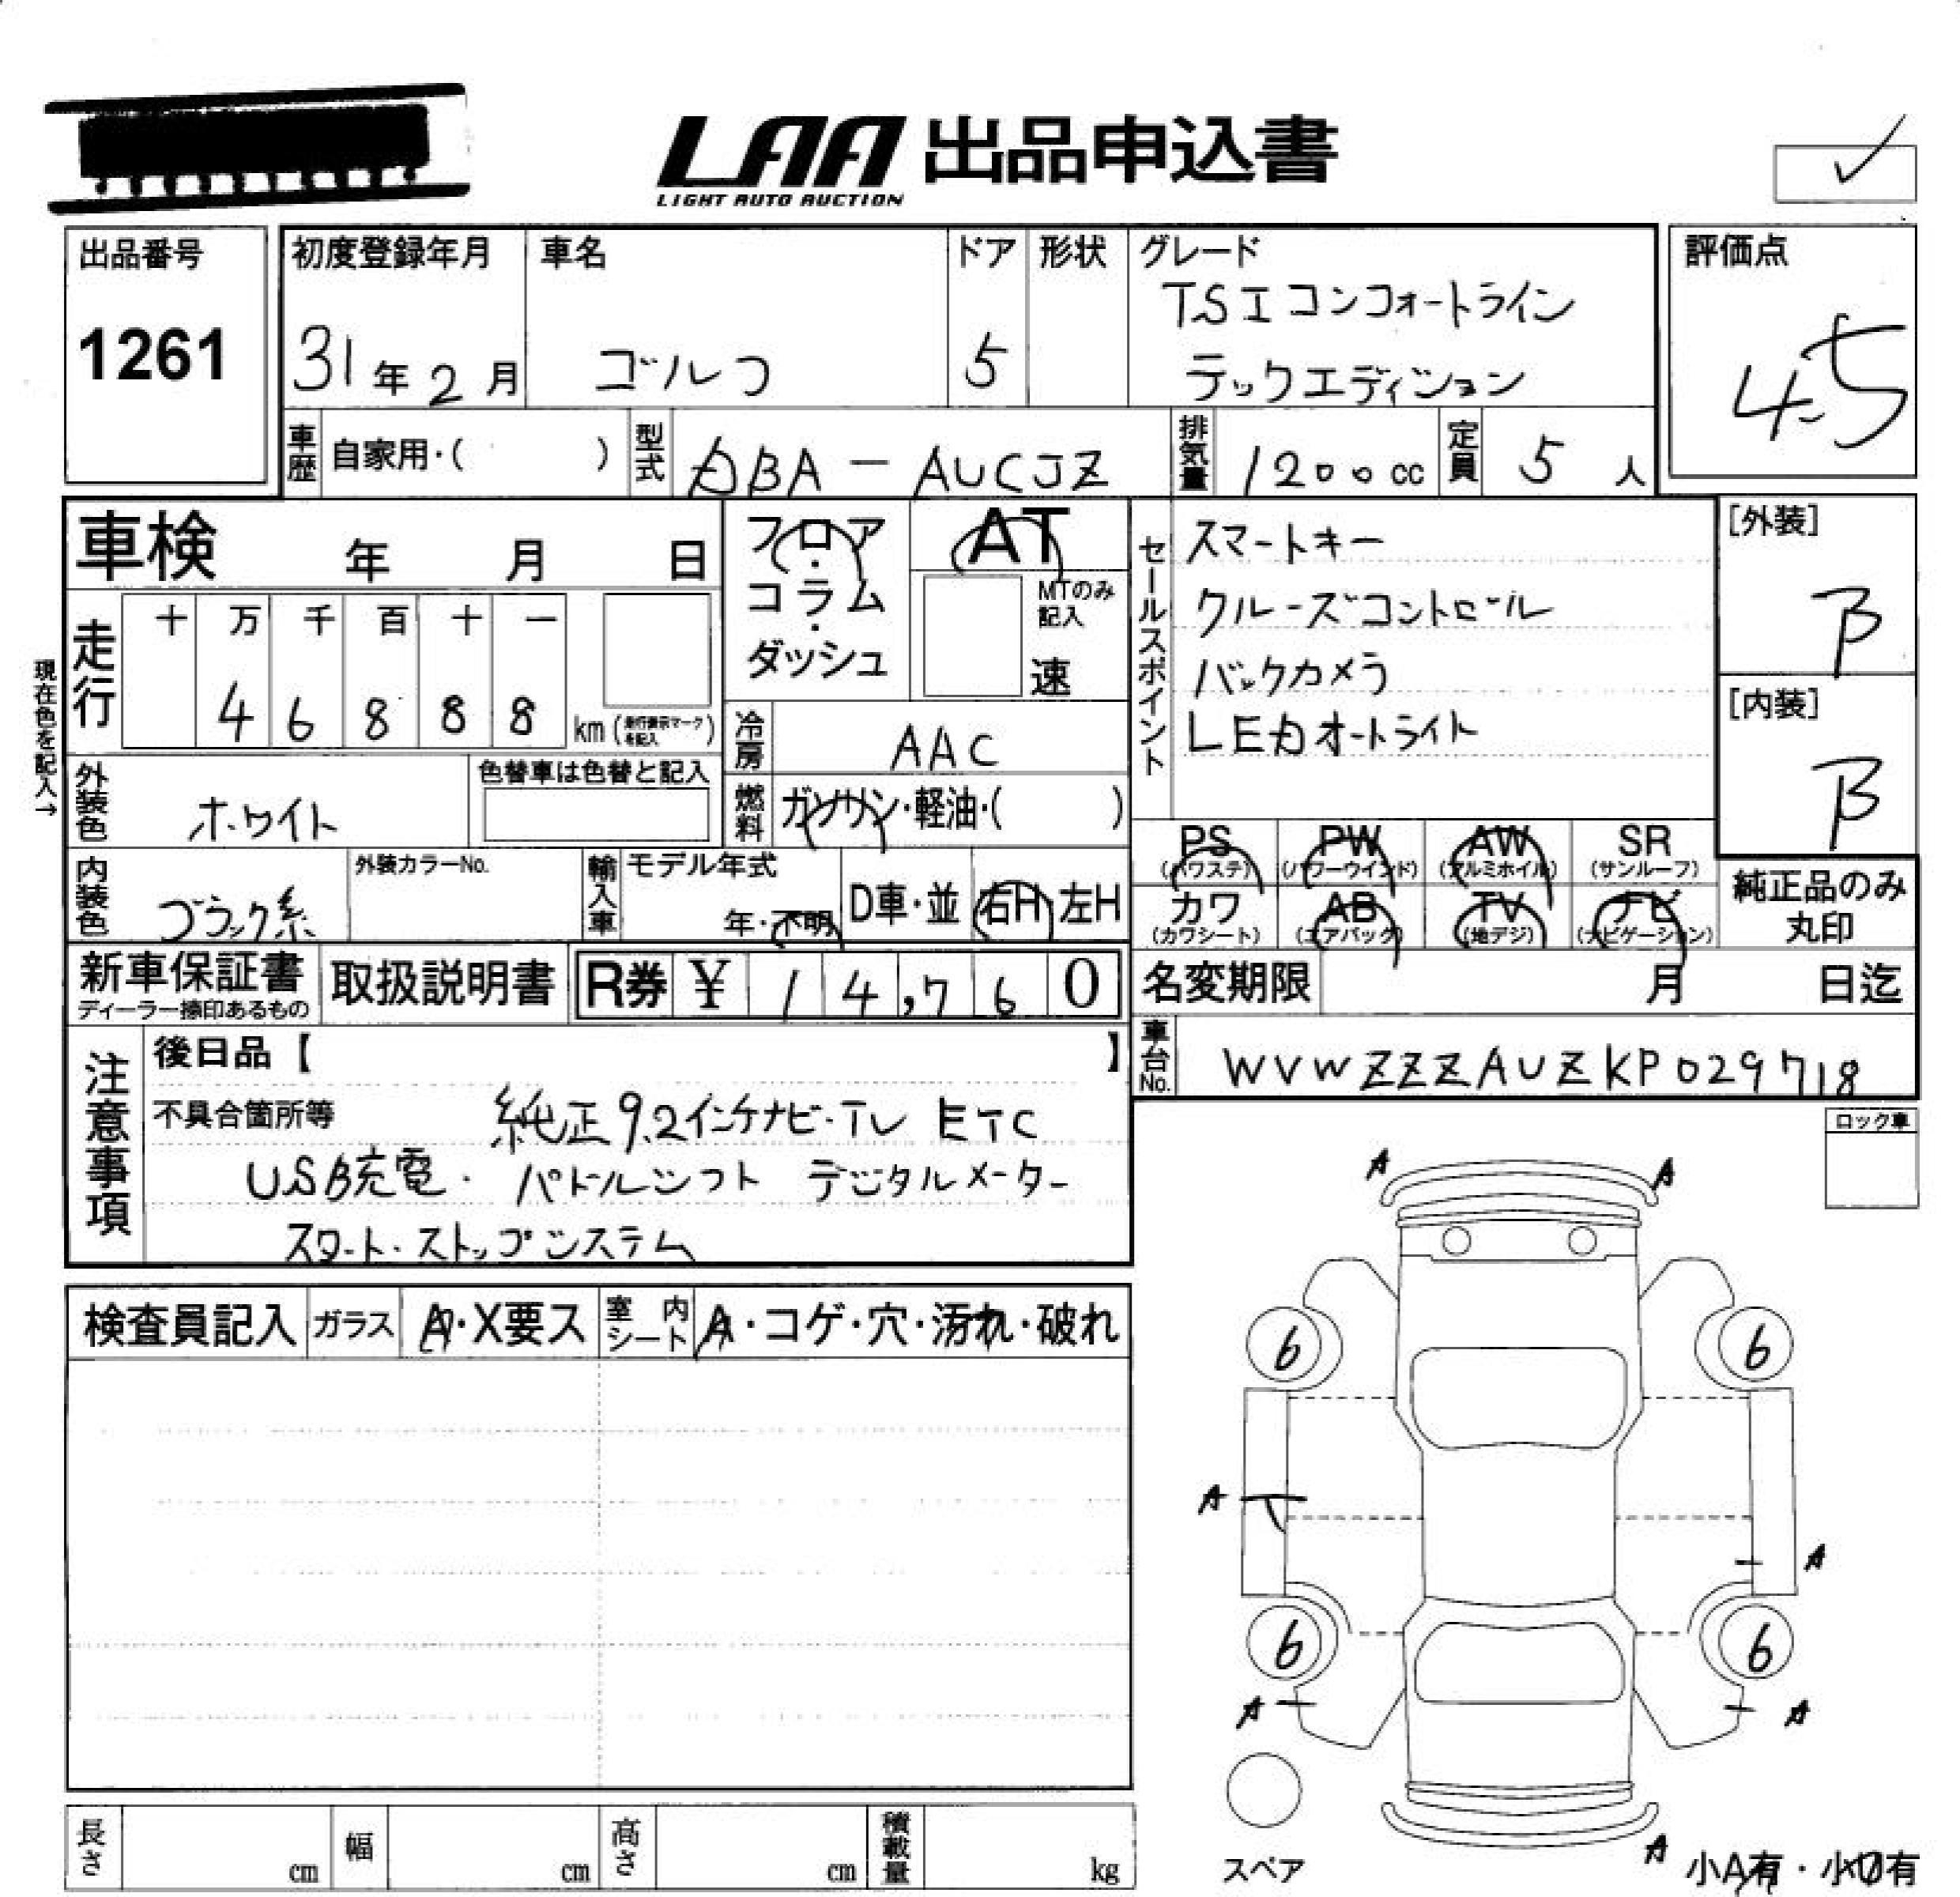 LAA 出品申込書
LIGHT AUTO AUCTION
出品番号
1261
初度登録年月
31年2月
車名
ゴルフ
ドア
5
形状
グレード
TSIコンフォートライン
テックエディション
評価点
4.5
車歴 自家用・( )
型式 DBA-AUCJZ
排気量 1200cc
定員 5人
車検 年 月 日
現在色を記入→
走行 十 万 千 百 十 一
46888 km
フロア・コラム・ダッシュ
AT
MTのみ記入
速
冷房 AAC
燃料 ガソリン・軽油・( )
外装色 ホワイト
色替車は色替と記入
内装色 ブラック系
外装カラーNo.
輸入車 モデル年式
年・不明
D車・並 右H 左H
セールスポイント
スマートキー
クルーズコントロール
バックカメラ
LEDオートライト
[外装]
B
[内装]
B
PS (パワステ) PW (パワーウインド) AW (アルミホイル) SR (サンルーフ)
カワ (カワシート) AB (エアバック) TV (地デジ) ナビ (ナビゲーション)
純正品のみ丸印
新車保証書
ディーラー捺印あるもの
取扱説明書
R券 ¥14,760
名変期限 月 日迄
車台No. WVWZZZAUZKP029718
注意事項
後日品【 】
不具合箇所等
純正9.2インチナビ・TV ETC
USB充電・パドルシフト デジタルメーター
スタート・ストップシステム
ロック車
検査員記入 ガラス A・X要ス 室内シート A・コゲ・穴・汚れ・破れ
A A
6 6
A
A
6 6
A A
スペア
A
小A有・小 有
長さ cm 幅 cm 高さ cm 積載量 kg